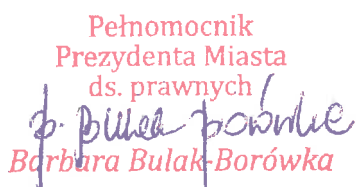 Pełnomocnik
Prezydenta Miasta
ds. prawnych
Barbara Bulak-Borówka